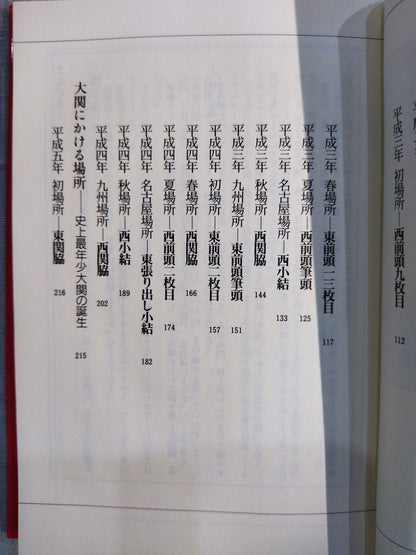 平成三年 初場所―西前頭九枚目 112
平成三年 春場所―東前頭一三枚目 117
平成三年 夏場所―西前頭筆頭 125
平成三年 名古屋場所―西小結 133
平成三年 秋場所―西関脇 144
平成三年 九州場所―東前頭筆頭 151
平成四年 初場所―東前頭二枚目 157
平成四年 春場所―西関脇 166
平成四年 夏場所―西前頭二枚目 174
平成四年 名古屋場所―東張り出し小結 182
平成四年 秋場所―西小結 189
平成四年 九州場所―西関脇 202
大関にかける場所――史上最年少大関の誕生 215
平成五年 初場所―東関脇 216